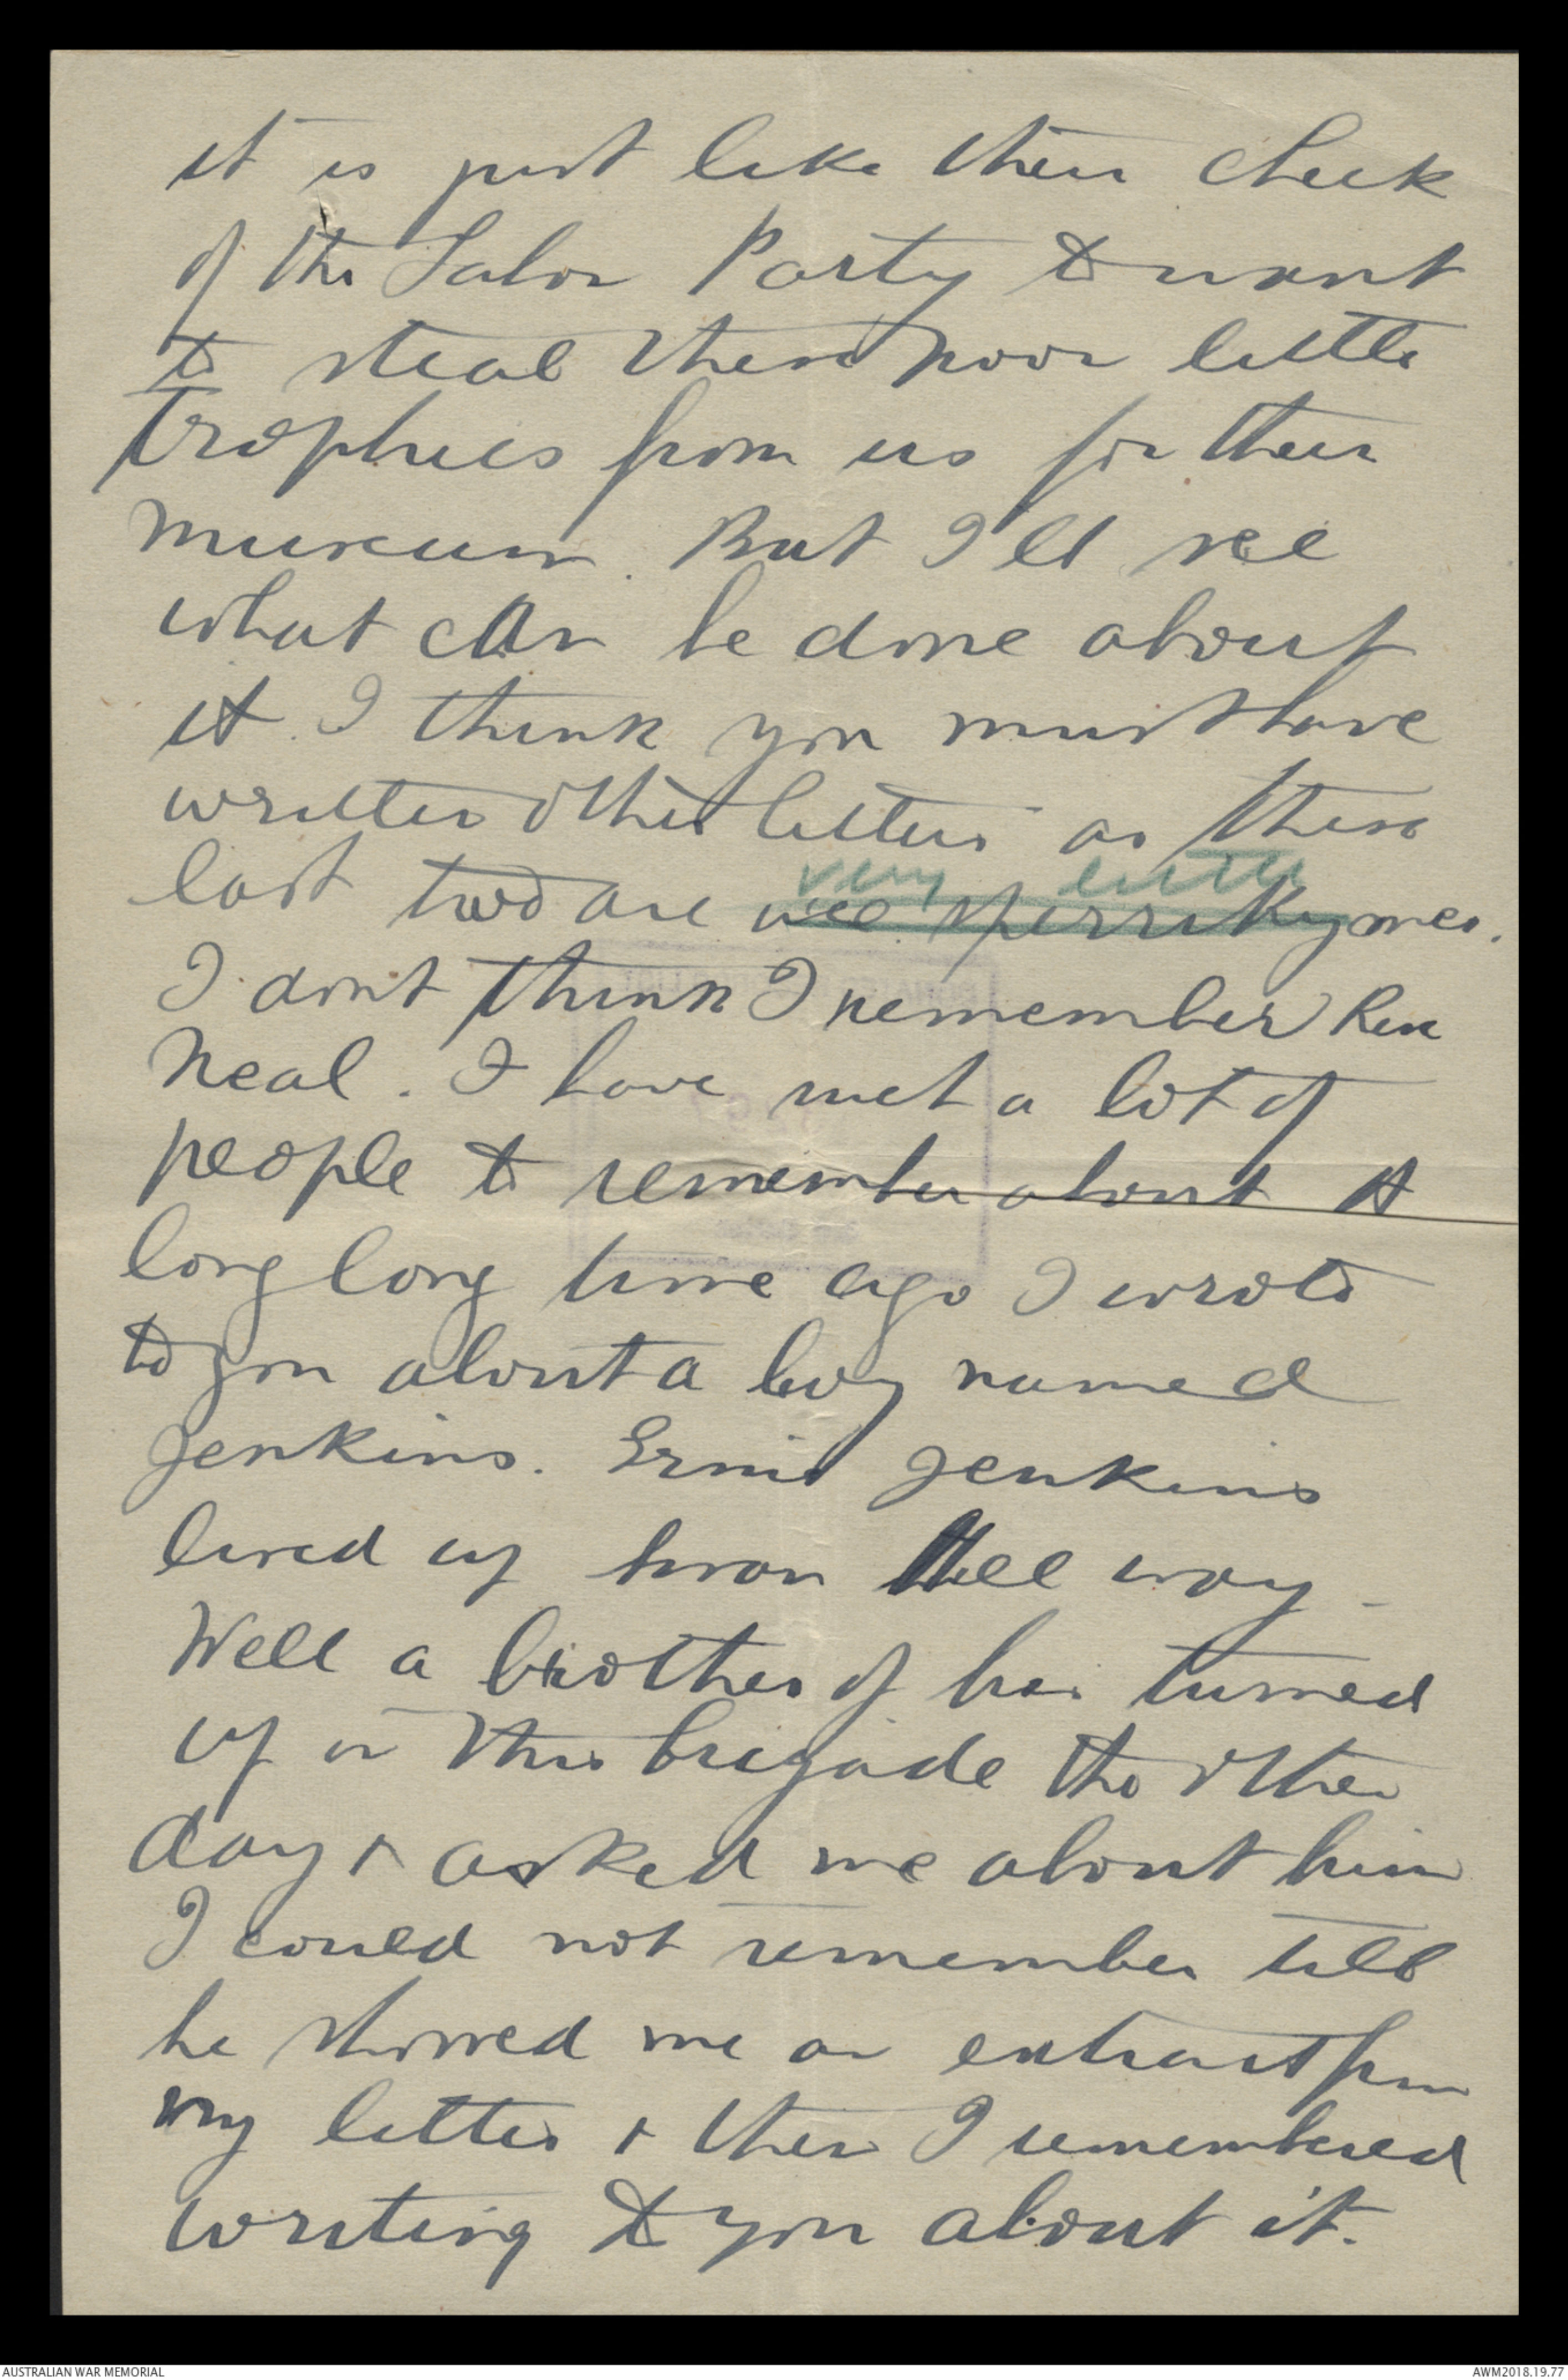 it is just like their cheek
of the Labor Party to want
to steal these poor little
trophies from us for their
museum. But I'll see
what can be done about
it. I think you must have
written other letters as these
very little
last two are wee sperriky ones.
I don't think I remember Rex
Neal. I have met a lot of
people to remember about A
long long time ago I wrote
to you about a boy named
Jenkins. Ernie Jenkins
lived up way
Well a brother of his turned
up in this brigade the other
day & asked me about him
I could not remember till
he showed me an extract from
my letter & then I remembered
writing to you about it.
AUSTRALIAN WAR MEMORIAL
AWM2018.19.77